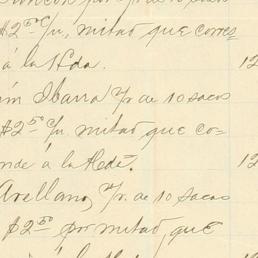 $2.50 c/u, mitad que corres-
á la Hda. 12
Ibarra v/r de 10 sacos
$2.50 c/u, mitad que co-
nde á la Hda. 12
Arellano, v/r. de 10 sacos
$2.50 por mitad, que